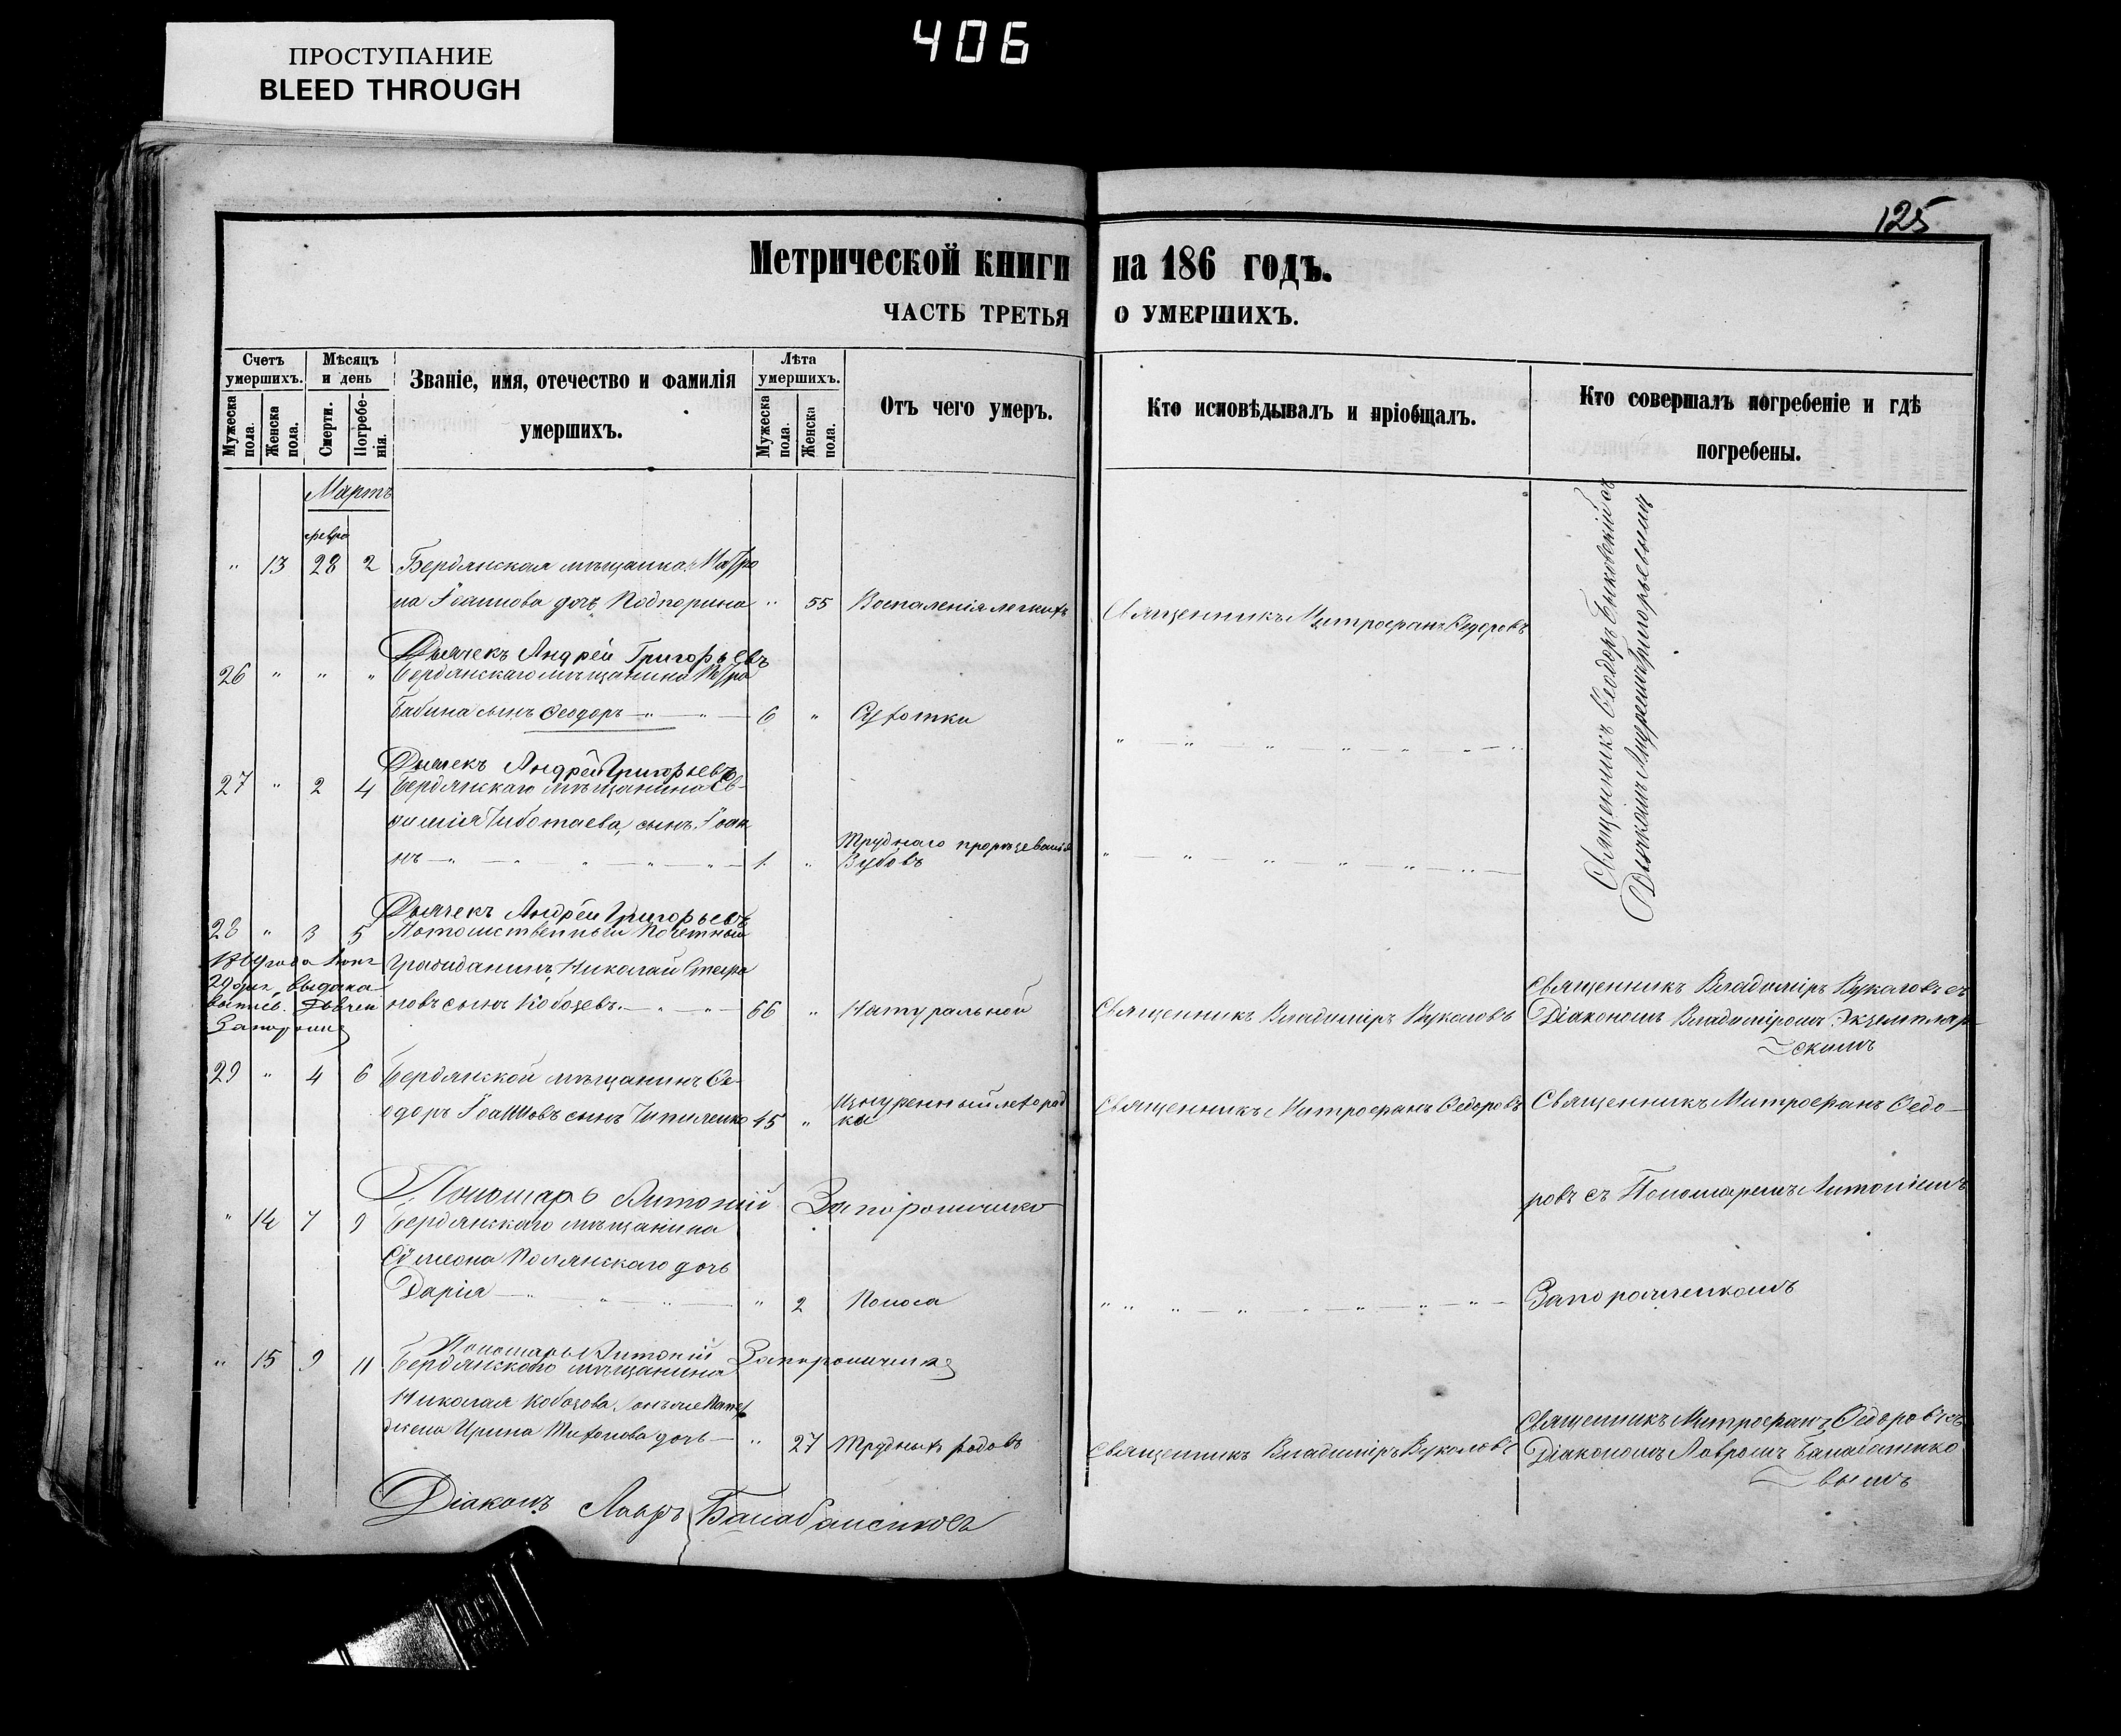 ПРОСТУПАНИЕ
BLEED THROUGH
406
125
Метрической книги на 186 годъ.
ЧАСТЬ ТРЕТЬЯ О УМЕРШИХЪ.
Счетъ умершихъ.
Мужеска пола.
Женска пола.
Мѣсяцъ и день
Смерти.
Погребенія.
Званіе, имя, отечество и фамилія
умершихъ.
Лѣта умершихъ.
Мужеска пола.
Женска пола.
Отъ чего умеръ.
Кто исповѣдывалъ и пріобщалъ.
Кто совершалъ погребеніе и гдѣ
погребены.
Мартъ
февра
" 13 28 2 Бердянская мѣщанка Матро
на Іоаннова дочь Подпорина " 55 Воспаленія легкихъ Священникъ Митрофанъ Ѳедоровъ
Священникъ Ѳеодоръ Быковскій съ
Дьячкомъ Андреемъ Григорьевымъ
Дьячекъ Андрей Григорьевъ
26 " " " Бердянскаго мѣщанина Петра
Бабина сынъ Ѳеодоръ 6 " Сухотки
Дьячекъ Андрей Григорьевъ
27 " 2 4 Бердянскаго мѣщанина Ев-
фимія Чиботаева, сынъ Іоан
нъ 1 " Труднаго прорѣзеванія
Зубовъ
Дьячекъ Андрей Григорьевъ
28 " 3 5 Потомственный Почетный
1869 года
Гражданинъ Николай Стефа
новъ сынъ Кобозевъ 66 " Натуральной Священникъ Владиміръ Вукаловъ
Священникъ Владиміръ Вукаловъ съ
Діакономъ Владиміромъ Экземпляр-
скимъ
29 " 4 6 Бердянской мѣщанинъ Ѳе-
одоръ Іоанновъ сынъ Чипиленко 45 " Изнуренный лехорад
ки Священникъ Митрофанъ Ѳедоровъ Священникъ Митрофанъ Ѳедо-
ровъ съ Пономаремъ Антоніемъ
Запорожченкомъ
Пономарь Антоній Запорожченко
" 14 7 9 Бердянскаго мѣщанина
Сѵмеона Полянскаго дочь
Дарія " 2 Поноса
Пономарь Антоній Запорожченко
" 15 9 11 Бердянскаго мѣщанина
Николая Кобозова
жена Ирина Тихонова дочь " 27 Трудныхъ родовъ Священникъ Владиміръ Вукаловъ
Священникъ Митрофанъ Ѳедоровъ съ
Діакономъ Лавромъ Балабаненко
вымъ
Діаконъ Лавръ Балабаненковъ